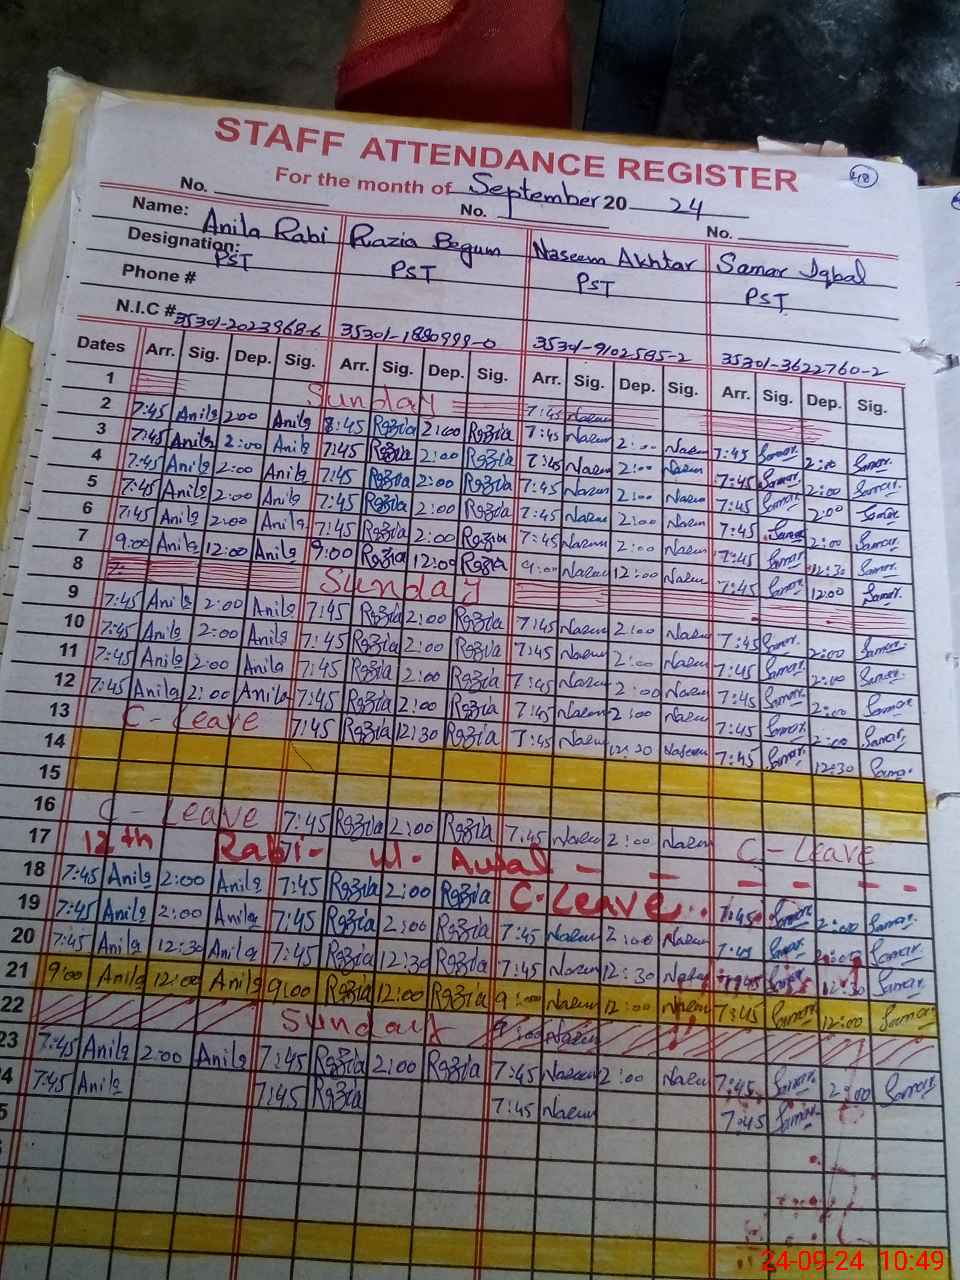 STAFF ATTENDANCE REGISTER
48
For the month of September 20 24
No. No. No.
Name: Anila Rabi Razia Begum Naseem Akhtar Samar Iqbal
Designation: PST PST PST PST
Phone #
N.I.C # 35301-2023968-6 35301-1880999-0 35301-9102585-2 35301-3622760-2
Dates Arr. Sig. Dep. Sig. Arr. Sig. Dep. Sig. Arr. Sig. Dep. Sig. Arr. Sig. Dep. Sig.
1 Sunday 7:45 Naeem
2 7:45 Anila 2:00 Anila 8:45 Razia 2:00 Razia 7:45 Naeem 2:00 Naeem 7:45 Samar 2:00 Samar
3 7:45 Anila 2:00 Anila 7:45 Razia 2:00 Razia 7:45 Naeem 2:00 Naeem 7:45 Samar 2:00 Samar
4 7:45 Anila 2:00 Anila 7:45 Razia 2:00 Razia 7:45 Naeem 2:00 Naeem 7:45 Samar 2:00 Samar
5 7:45 Anila 2:00 Anila 7:45 Razia 2:00 Razia 7:45 Naeem 2:00 Naeem 7:45 Samar 2:00 Samar
6 7:45 Anila 2:00 Anila 7:45 Razia 2:00 Razia 7:45 Naeem 2:00 Naeem 7:45 Samar 12:30 Samar
7 9:00 Anila 12:00 Anila 9:00 Razia 12:00 Razia 9:00 Naeem 12:00 Naeem 7:45 Samar 12:00 Samar
8 Sunday
9 7:45 Anila 2:00 Anila 7:45 Razia 2:00 Razia 7:45 Naeem 2:00 Naeem 7:45 Samar 2:00 Samar
10 7:45 Anila 2:00 Anila 7:45 Razia 2:00 Razia 7:45 Naeem 2:00 Naeem 7:45 Samar 2:00 Samar
11 7:45 Anila 2:00 Anila 7:45 Razia 2:00 Razia 7:45 Naeem 2:00 Naeem 7:45 Samar 2:00 Samar
12 7:45 Anila 2:00 Anila 7:45 Razia 2:00 Razia 7:45 Naeem 2:00 Naeem 7:45 Samar 2:00 Samar
13 C-Leave 7:45 Razia 12:30 Razia 7:45 Naeem 12:30 Naseem 7:45 Samar 12:30 Samar
14
15
16 C-Leave 7:45 Razia 2:00 Razia 7:45 Naeem 2:00 Naeem C-Leave
17 12th Rabi-ul-Awal - - - - - -
18 7:45 Anila 2:00 Anila 7:45 Razia 2:00 Razia C-Leave 7:45 Samar 2:00 Samar
19 7:45 Anila 2:00 Anila 7:45 Razia 2:00 Razia 7:45 Naeem 2:00 Naeem 7:45 Samar 2:00 Samar
20 7:45 Anila 12:30 Anila 7:45 Razia 12:30 Razia 7:45 Naeem 12:30 Naeem 7:45 Samar 12:30 Samar
21 9:00 Anila 12:00 Anila 9:00 Razia 12:00 Razia 9:00 Naeem 12:00 Naeem 7:45 Samar 12:00 Samar
22 Sunday 9:00 Naeem
23 7:45 Anila 2:00 Anila 7:45 Razia 2:00 Razia 7:45 Naseem 2:00 Naeem 7:45 Samar 2:00 Samar
4 7:45 Anila 7:45 Razia 7:45 Naeem 7:45 Samar
5
24-09-24 10:49